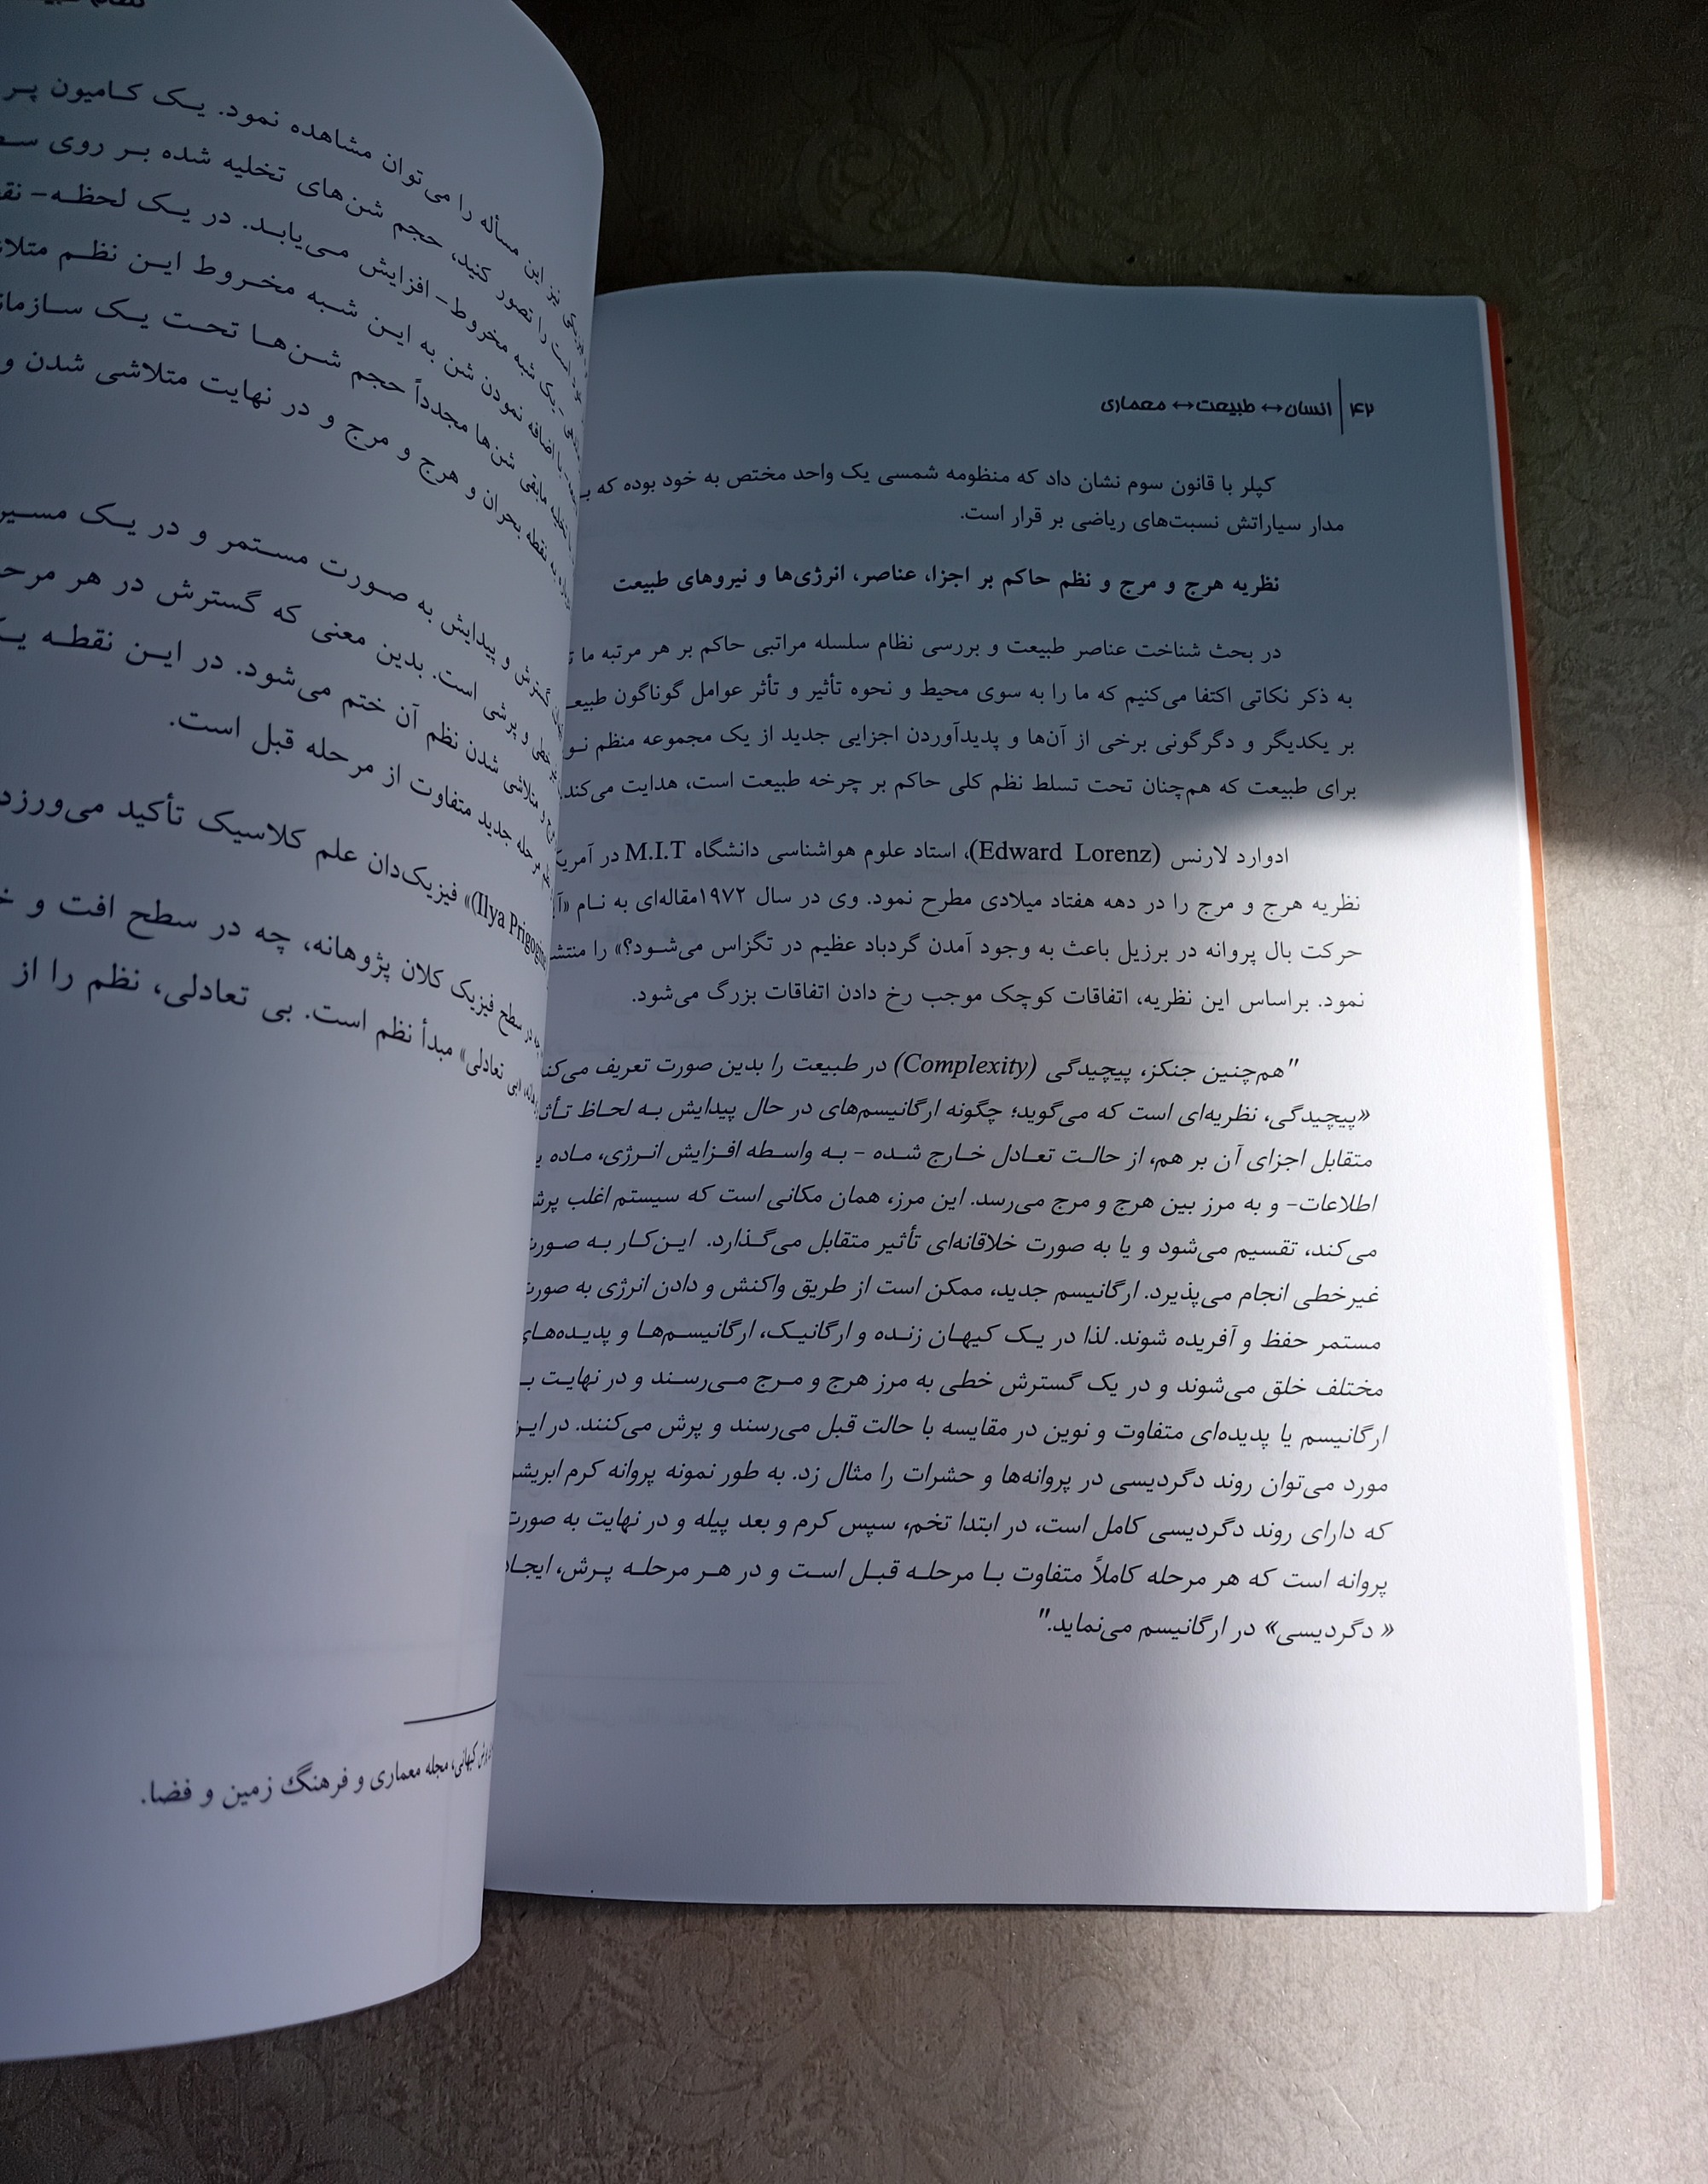 ۴۲ انسان↔طبیعت↔معماری
کپلر با قانون سوم نشان داد که منظومه شمسی یک واحد مختص به خود بوده که
مدار سیاراتش نسبت‌های ریاضی بر قرار است.
نظریه هرج و مرج و نظم حاکم بر اجزا، عناصر، انرژی‌ها و نیروهای طبیعت
در بحث شناخت عناصر طبیعت و بررسی نظام سلسله مراتبی حاکم بر هر مرتبه ما
به ذکر نکاتی اکتفا می‌کنیم که ما را به سوی محیط و نحوه تأثیر و تأثر عوامل گوناگون
بر یکدیگر و دگرگونی برخی از آن‌ها و پدیدآوردن اجزایی جدید از یک مجموعه منظم
برای طبیعت که هم‌چنان تحت تسلط نظم کلی حاکم بر چرخه طبیعت است، هدایت می‌کند.
ادوارد لارنس (Edward Lorenz)، استاد علوم هواشناسی دانشگاه M.I.T در
نظریه هرج و مرج را در دهه هفتاد میلادی مطرح نمود. وی در سال ۱۹۷۲مقاله‌ای به نام
حرکت بال پروانه در برزیل باعث به وجود آمدن گردباد عظیم در تگزاس می‌شود؟» را
نمود. براساس این نظریه، اتفاقات کوچک موجب رخ دادن اتفاقات بزرگ می‌شود.
"هم‌چنین جنکز، پیچیدگی (Complexity) در طبیعت را بدین صورت تعریف
«پیچیدگی، نظریه‌ای است که می‌گوید؛ چگونه ارگانیسم‌های در حال پیدایش به لحاظ
متقابل اجزای آن بر هم، از حالت تعادل خارج شده - به واسطه افزایش انرژی، ماده
اطلاعات- و به مرز بین هرج و مرج می‌رسد. این مرز، همان مکانی است که سیستم اغلب
می‌کند، تقسیم می‌شود و یا به صورت خلاقانه‌ای تأثیر متقابل می‌گذارد. این‌کار به
غیرخطی انجام می‌پذیرد. ارگانیسم جدید، ممکن است از طریق واکنش و دادن انرژی به
مستمر حفظ و آفریده شوند. لذا در یک کیهان زنده و ارگانیک، ارگانیسم‌ها و
مختلف خلق می‌شوند و در یک گسترش خطی به مرز هرج و مرج می‌رسند و در نهایت
ارگانیسم یا پدیده‌ای متفاوت و نوین در مقایسه با حالت قبل می‌رسند و پرش می‌کنند. در
مورد می‌توان روند دگردیسی در پروانه‌ها و حشرات را مثال زد. به طور نمونه پروانه کرم
که دارای روند دگردیسی کامل است، در ابتدا تخم، سپس کرم و بعد پیله و در نهایت به
پروانه است که هر مرحله کاملاً متفاوت با مرحله قبل است و در هر مرحله پرش،
« دگردیسی» در ارگانیسم می‌نماید."
نیز این مسأله را می‌توان مشاهده نمود. یک کامیون پر
است را تصور کنید، حجم شن‌های تخلیه شده بر روی
یک شبه مخروط- افزایش می‌یابد. در یک لحظه-
با اضافه نمودن شن به این شبه مخروط این نظم
مابقی شن‌ها مجدداً حجم شن‌ها تحت یک
به نقطه بحران و هرج و مرج و در نهایت متلاشی شدن و
گسترش و پیدایش به صورت مستمر و در یک
خطی و پرشی است. بدین معنی که گسترش در هر
و متلاشی شدن نظم آن ختم می‌شود. در این نقطه
مرحله جدید متفاوت از مرحله قبل است.
(Ilya Prigogine)» فیزیک‌دان علم کلاسیک تأکید می‌ورزد
چه در سطح فیزیک کلان پژوهانه، چه در سطح افت و
بی تعادلی» مبدأ نظم است. بی تعادلی، نظم را از
کیهانی، مجله معماری و فرهنگ زمین و فضا.